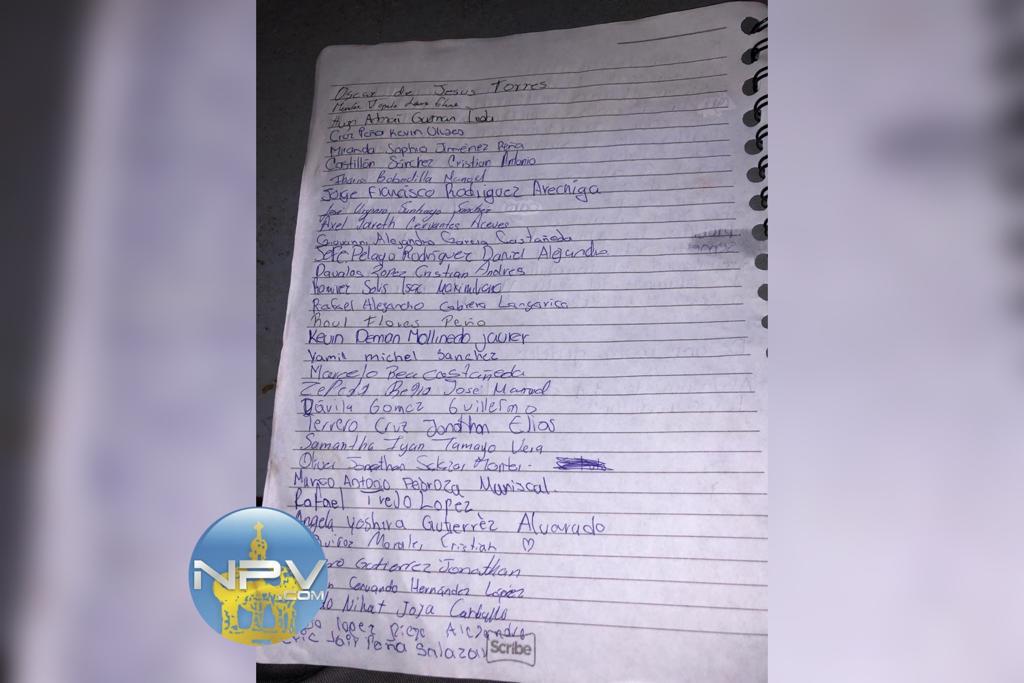 Oscar de Jesus Torres
Hugo Adnai Guzman
Cruz Peña Kevin Ulises
Miranda Sophia Jiménez Peña
Castillón Sánchez Cristian Antonio
Ibarra Bobadilla Manuel
Jorge Francisco Rodriguez Arechiga
Santiago Sanchez
Axel Jareth Cervantes Aceves
Giovanni Alejandro Garcia Castañeda
Pelayo Rodríguez Daniel Alejandro
Davalos Lopez Cristian Andres
Ramirez Solis Isac Maximiliano
Rafael Alejandro Cabrera Langarica
Raul Flores Peña
Kevin Demon Mollinedo javier
Yamil michel Sanchez
Marcelo Bea castañeda
Zepeda José Manuel
Dávila Gomez Guillermo
Terrero Cruz Jonathan Elias
Samantha Tamayo Vera
Oliver Jonathan Salazar Montes.
Marco Antonio Pedroza Mariscal.
Rafael Trejo Lopez
Angela Yoshira Gutierrèz Alvarado
Quiroz Morales Cristian ♡
Gutierrez Jonathan
Hernández Lopez
Nihat Carballo
lopez Diego Alejandro
Eric Jair Peña Salazar
Scribe
NPV
.COM